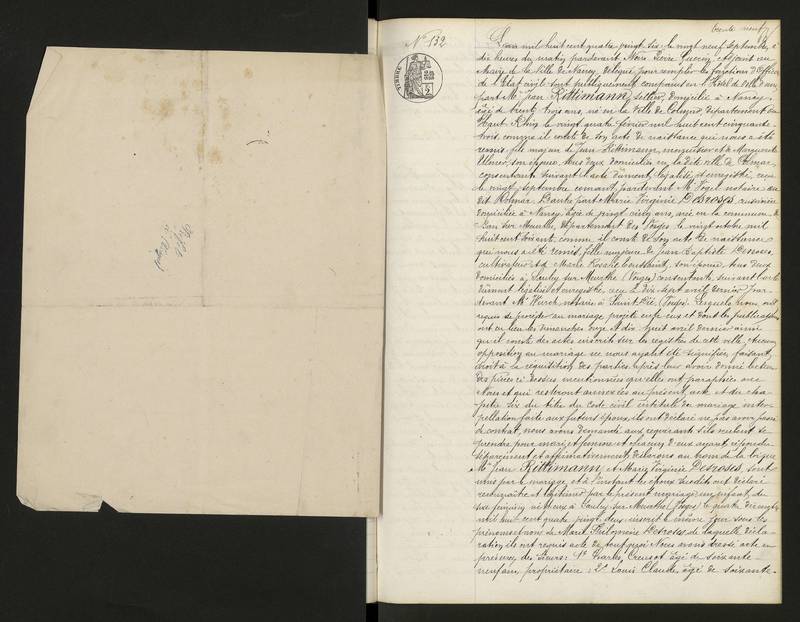 trente neuf
N° 132
L'an mil huit cent quatre vingt six le vingt neuf Septembre, à
dix heures du matin pardevant Nous Pierre Adjoint au
Maire de la Ville de Nancy, délégué pour remplir les fonctions d'Officier
de l'état civil sont publiquement comparus en l'hôtel de Ville d'une
part Mr Jean Rittimann, sellier, domicilié à Nancy,
âgé de trente trois ans, né en la ville de Colmar, département du
Haut Rhin le vingt quatre février mil huit cent cinquante
trois, comme il conste de son acte de naissance qui nous a été
remis, fils majeur de Jean Rittimann, et de Marguerite
son épouse, tous deux domiciliés en la dite ville de Colmar,
consentants suivant acte dûment légalisé et enregistré, reçu
le vingt septembre courant pardevant Me Vogel notaire au
dit Colmar. D'autre part Marie Virginie Desroses, cuisinière
domiciliée à Nancy, âgée de vingt cinq ans, née en la commune de
sur Meurthe, département des Vosges le vingt octobre mil
huit cent soixante, comme il conste de son acte de naissance
qui nous a été remis, fille majeure de Jean Baptiste Desroses,
cultivateur et Marie Toussaint, son épouse, tous deux
domiciliés à Saulcy sur Meurthe (Vosges) consentants, suivant acte
dûment légalisé et enregistré, reçu le dix sept avril dernier par
devant Me notaire à Saint Dié (Vosges). Lesquels nous ont
requis de procéder au mariage projeté entre eux et dont les publications
ont eu lieu les dimanches onze et dix huit avril dernier ainsi
qu'il conste des actes inscrits sur les registres de cette ville. Aucune
opposition au mariage ne nous ayant été signifiée, faisant
droit à la réquisition des parties après leur avoir donné lecture
des pièces ci dessus mentionnées qu'elles ont paraphées avec
Nous et qui resteront annexées au présent acte et du cha-
pitre six du titre du Code civil intitulé du mariage inter-
pellation faite aux futurs époux, ils ont déclaré ne pas avoir passé
de contrat, nous avons demandé aux requérants s'ils veulent se
prendre pour mari et femme et chacun d'eux ayant répondu
séparément et affirmativement, déclarons au nom de la loi que
Mr Jean Rittimann et Marie Virginie Desroses, sont
unis par le mariage, et à l'instant les époux susdits ont déclaré
reconnaître et légitimer par le présent mariage un enfant du
sexe féminin née d'eux à Saulcy sur Meurthe (Vosges) le quatre
mil huit cent quatre vingt deux inscrit le même jour sous les
prénoms et nom de Marie Philomène Desroses, de laquelle décla-
ration ils ont requis acte de tout quoi Nous avons dressé acte en
présence des Sieurs: 1° Charles Creusot âgé de soixante
neuf ans, propriétaire; 2° Louis Claude, âgé de soixante-